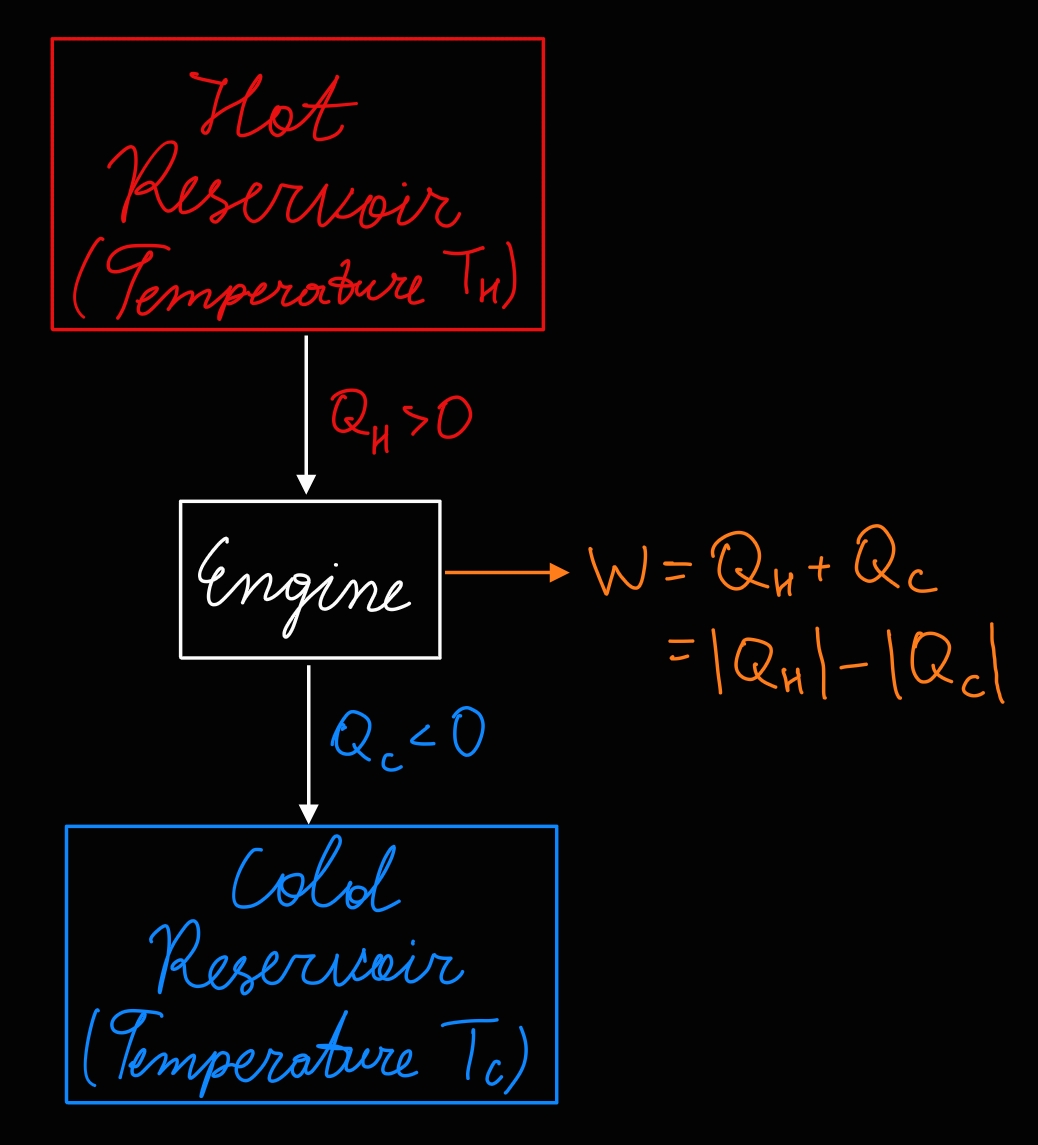 Hot
Reservoir
(Temperature T_H)
Q_H > 0
Engine
W = Q_H + Q_C
= |Q_H| - |Q_C|
Q_C < 0
Cold
Reservoir
(Temperature T_C)